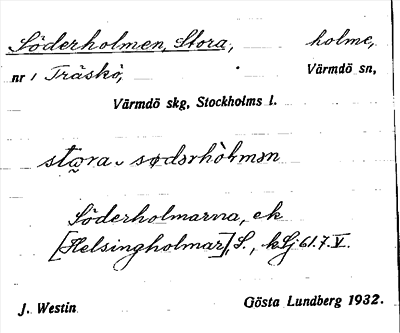 Söderholmen, Stora, holme,
nr 1 Träskö, Värmdö sn,
Värmdö skg, Stockholms l.
stora södərhòlmən
Söderholmarna, ek
[Helsingholmar], S., kSj 61.7.V.
J. Westin Gösta Lundberg 1932.